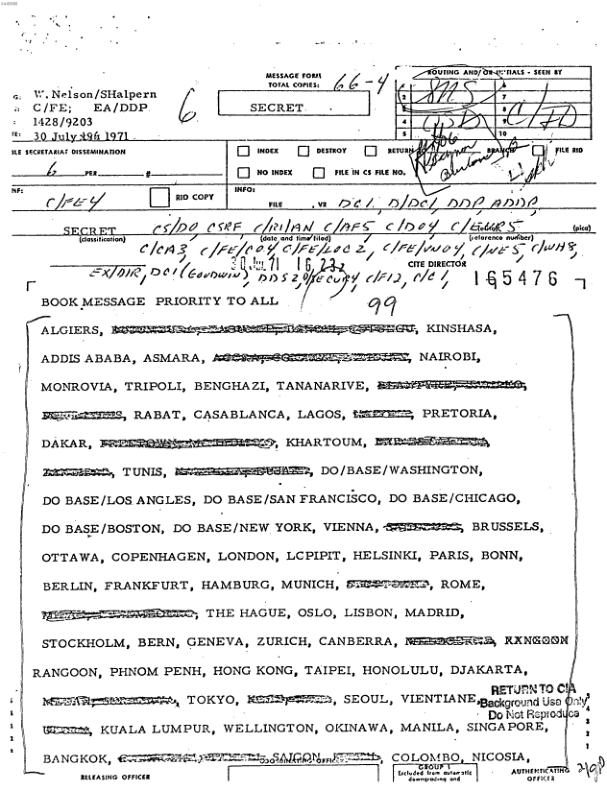 MESSAGE FORM
TOTAL COPIES: 66-4
ROUTING AND/OR INITIALS - SEEN BY
W. Nelson/SHalpern
C/FE; EA/DDP
1428/9203
30 July 1971
6
SECRET
SMS
2
3
4
5
6
7
8
9
10
FILE SECRETARIAT DISSEMINATION
INDEX
DESTROY
RETURN
BRANCH
FILE RID
6 PER #
NO INDEX
FILE IN CS FILE NO.
CONF:
C/FE4
RID COPY
INFO:
FILE , VR DCI, D/DCI, DDP, ADDP,
SECRET
CS/DO CSRF, C/RI/AN C/AF5 C/DO4, C/EUR5
(classification)
(date and time filed)
(reference number)
(pica)
C/CA3, C/FE/CO4, C/FE/LOC2, C/FE/VNO4, C/NE5, C/WH8,
30 JUL 71 16 23Z
CITE DIRECTOR
EX/DIR, DCI (GOODWIN), DDS2, O/SECUR4, C/FI2, C/CI,
165476
BOOK MESSAGE PRIORITY TO ALL
99
ALGIERS, KINSHASA,
ADDIS ABABA, ASMARA, NAIROBI,
MONROVIA, TRIPOLI, BENGHAZI, TANANARIVE,
RABAT, CASABLANCA, LAGOS, PRETORIA,
DAKAR, KHARTOUM,
TUNIS, DO/BASE/WASHINGTON,
DO BASE/LOS ANGLES, DO BASE/SAN FRANCISCO, DO BASE/CHICAGO,
DO BASE/BOSTON, DO BASE/NEW YORK, VIENNA, BRUSSELS,
OTTAWA, COPENHAGEN, LONDON, LCPIPIT, HELSINKI, PARIS, BONN,
BERLIN, FRANKFURT, HAMBURG, MUNICH, ROME,
THE HAGUE, OSLO, LISBON, MADRID,
STOCKHOLM, BERN, GENEVA, ZURICH, CANBERRA,
RANGOON, PHNOM PENH, HONG KONG, TAIPEI, HONOLULU, DJAKARTA,
TOKYO, SEOUL, VIENTIANE,
KUALA LUMPUR, WELLINGTON, OKINAWA, MANILA, SINGAPORE,
BANGKOK, SAIGON, COLOMBO, NICOSIA,
RETURN TO CIA
Background Use Only
Do Not Reproduce
RELEASING OFFICER
COORDINATING OFFICERS
GROUP 1
Excluded from automatic
downgrading and
AUTHENTICATING
OFFICER